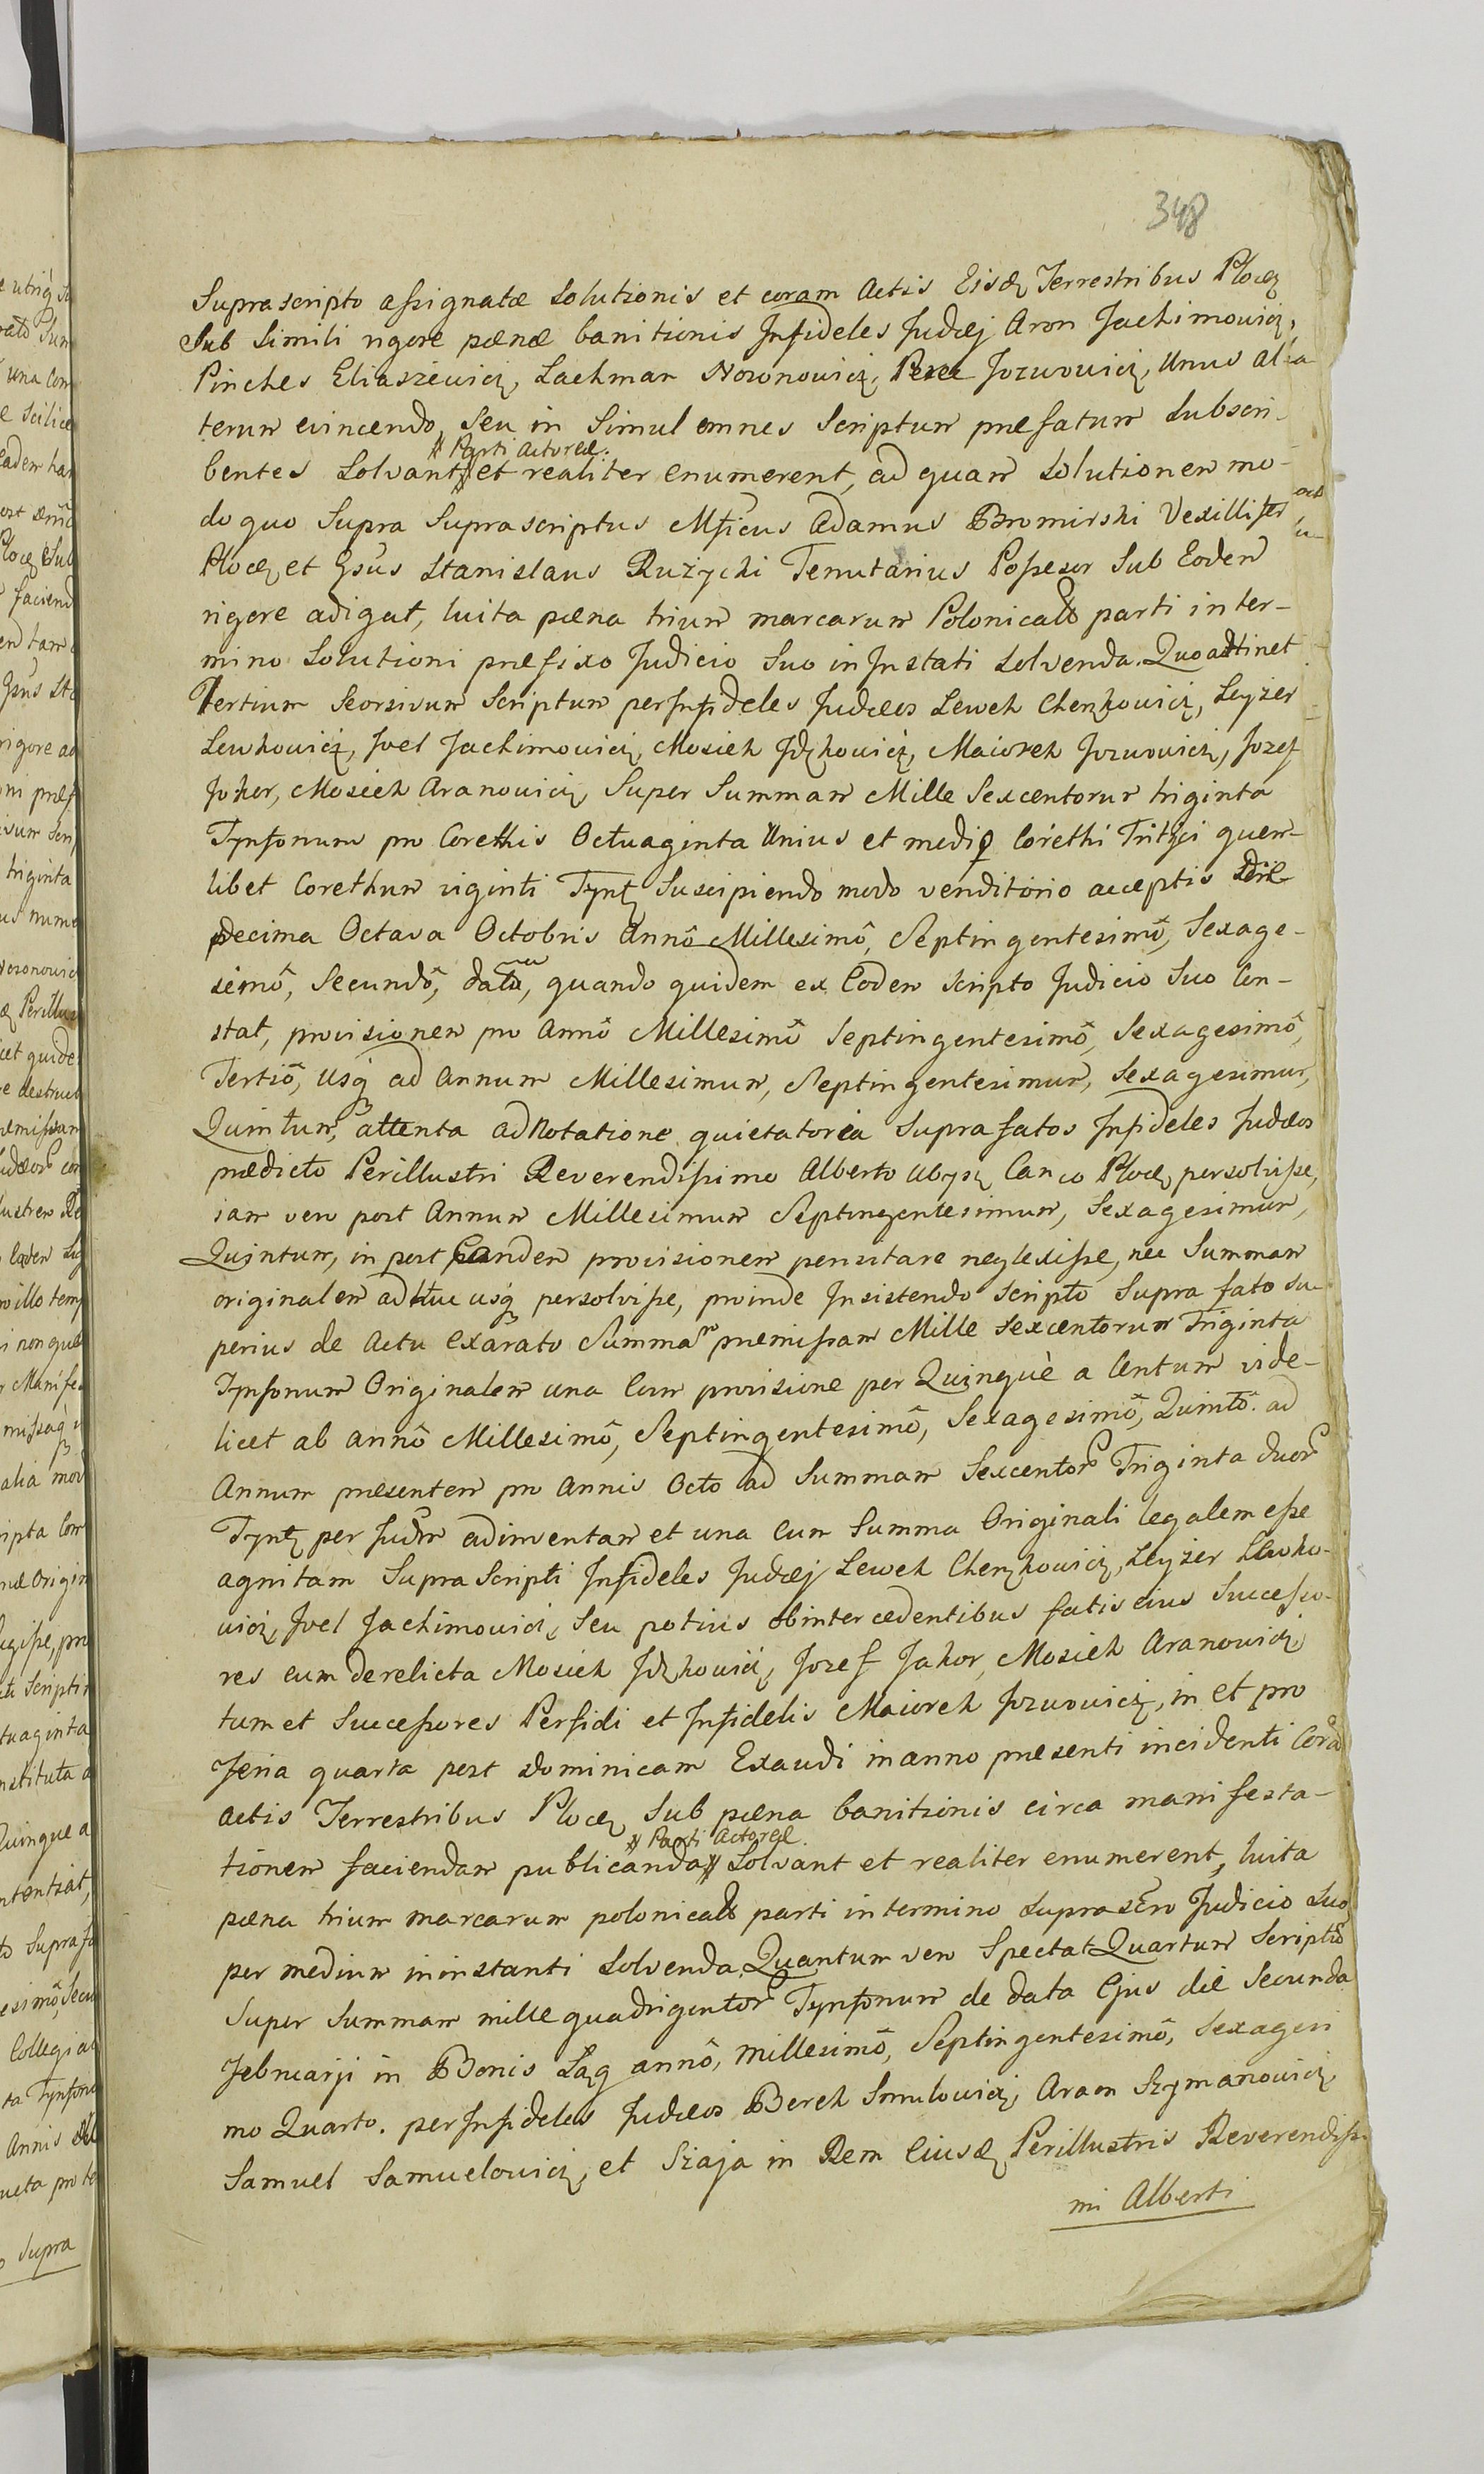 348
Suprascripto assignatæ Solutionis et coram Actis Eisdẽ Terrestribus Plocẽ
Sub Simili rigore pænæ banitionis Infideles Judæj Aron Jachimowicz,
Pinches Eliaszewicz, Lachman Noronowicz, Jozwowicz, Unus al
terum evincendo, Seu in Simul omnes Scriptum præfatum Subscri-
# Parti Actoreæ.
bentes Solvant # et realiter enumerent, ad quam Solutionem mo-
do quo Supra Suprascriptus Mficus Adamus Bromirski Vexillifer
Plocẽ et Gsus Stanislaus Rużycki Tenutarius Possesor Sub Eodem
rigore adigat, luita pæna trium marcarum Polonical parti in ter-
mino Solutioni præfixo Judicio Suo in Instati Solvenda. Quo attinet
Tertium Seorsivum Scriptum per Infideles Judæos Lewek Chenkowicz, Leyzer
Lewkowicz, Joel Jachimowicz, Mosiek Jckowicz, Maiorek Jozwowicz, Jozef
Joker, Mosiek Aranowicz, Super Summam Mille Sexcentorum triginta
Tynfonum pro Corethis Octuaginta Unius et medij Corethi Tritici quem-
libet Corethum viginti Tynf Suscipiendo modo venditorio acceptis die
decima Octava Octobris Annô Millesimô, Septingentesimô, Sexage-
simô, Secundô, dato, quando quidem ex Eodem scripto Judicio Suo Con-
stat, provisionem pro Annô Millesimô Septingentesimô, Sexagesimô,
Tertiô, Usq ad Annum Millesimum, Septingentesimum, Sexagesimum,
Quintum, attenta adnotatione quietatoria Suprafatos Infideles Judæos
prædicto Perillustri Reverendissimo Alberto Ubysz Canco Plocẽ persolvisse,
iam vero post Annum Millesimum Septingentesimum, Sexagesimum,
Quintum, in post Eandem provisionem pensitare neglexisse, nec Summam
originalem adhuc usq persolvisse, proinde Insistendo Scripto Supra fato Su-
perius de Actu Exarato Summam præmissam Mille Sexcentorum Triginta
Tynfonum Originalem una Cum provisione per Quinquè a Centum vide-
licet ab annô Millesimô, Septingentesimô, Sexagesimô, Quintô. ad
Annum præsentem pro Annis Octo ad Summam Sexcentor Triginta duor
Tynf per Judm adinventam et una Cum Summa Originali legalem esse
agnitam Supra Scripti Infideles Judæj Lewek Chenkowicz, Leyzer Lewko-
wicz, Joel Jachimowicz, Seu potius ob intercedentibus fatis eius Successo-
res eum derelicta Mosiek Jckowicz, Jozef Jakor, Mosiek Aranowicz
tum et Successores Perfidi et Infidelis Maiorek Jozwowicz, in et pro
Feria quarta post Dominicam Exaudi in anno præsenti incidenti Cora
actis Terrestribus Plocẽ Sub pæna banitionis circa manifesta-
# Parti Actoreæ.
tionem faciendam publicanda # Solvant et realiter enumerent, luita
pæna trium marcarum polonical parti in termino Supra Scro Judicio Suo
per medium in instanti Solvenda. Quantum vero Spectat Quartum Scriptũ
Super Summam mille quadrigentor Tynfonum de data Ejus die Secunda
Februarji in Bonis Łąg annô, millesimô, Septingentesimô, Sexagesi
mo Quarto. per Infideles Judæos Berek Smulowicz, Aron Szymanowicz,
Samuel Samuelowicz, et Szaja in Rem Eiusdẽ Perillustris Reverendiss
mi Alberti